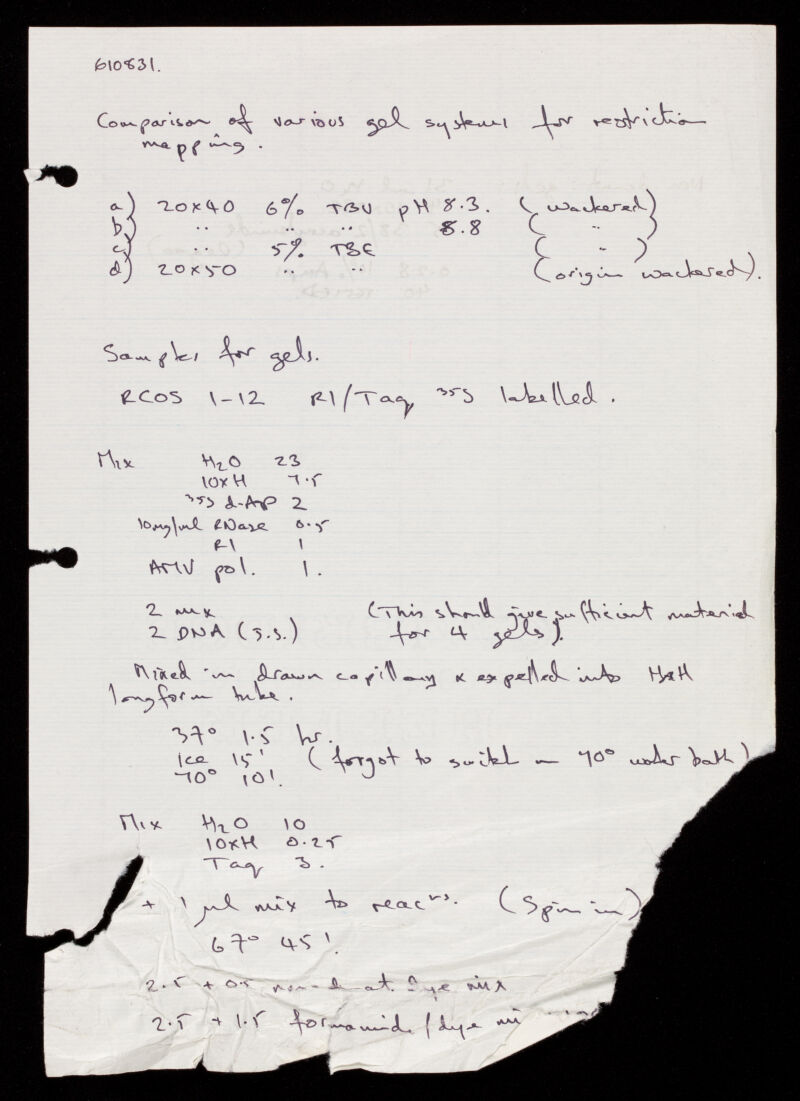 610831.
Comparison of various gel systems for restriction
mapping.
a) 20x40 6% TBU pH 8.3. (wackered)
b) " " " 8.8 ( " )
c) " 5% TBE ( " )
d) 20x50 " " (origin wackered).
Samples for gels.
RCOS 1-12 R1/Taq 35S labelled.
Mix H2O 23
10xH 7.5
35S 2
10mg/ml RNase 0.5
R1 1
AMV pol. 1.
2 mix (This should give sufficient material
2 DNA (s.s.) for 4 gels).
Mixed in drawn capillary & expelled into
longform tube.
37° 1.5 hr.
Ice 15' (forgot to switch on 70° water bath)
70° 10'.
Mix H2O 10
10xH 0.25
Taq 3.
+ 1 µl mix to reacns. (Spin in)
67° 45'.
2.5 + 0.5 dye mix
2.5 + 1.5 formamide/dye